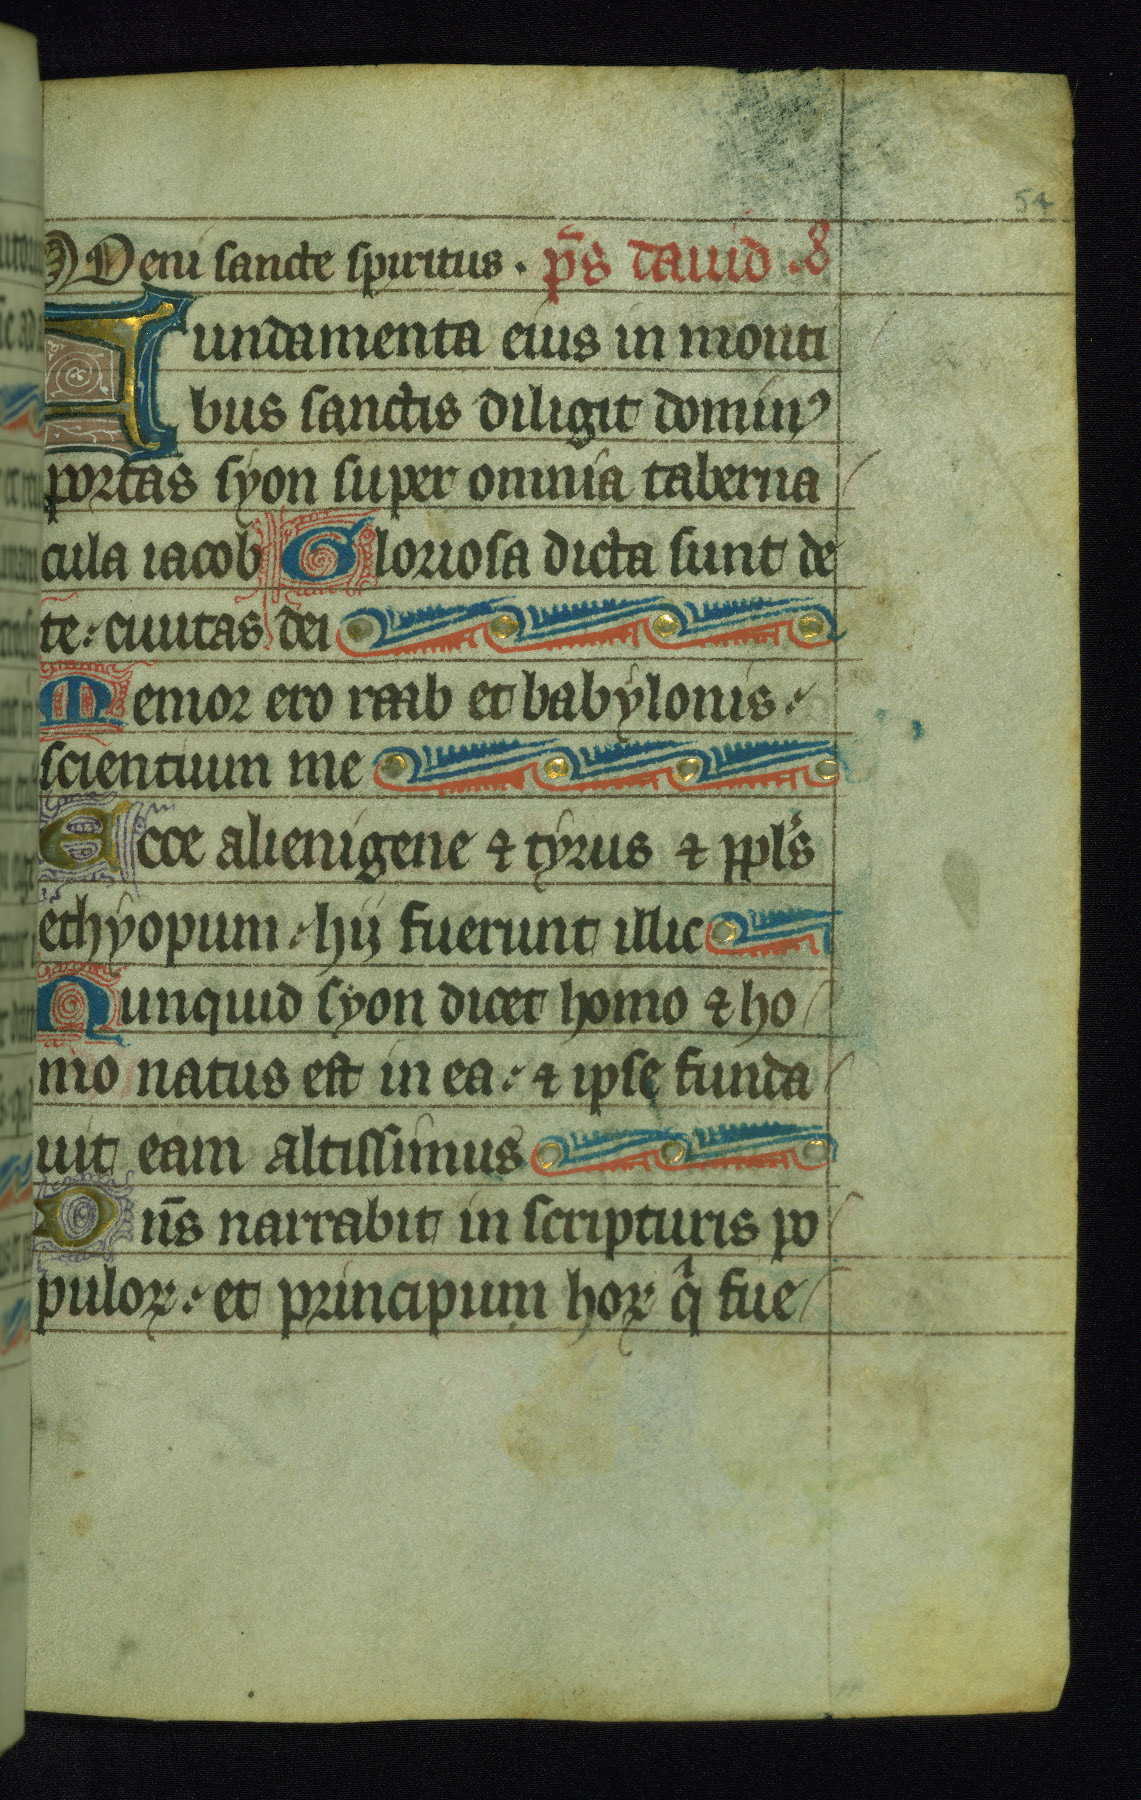 Veni sancte spiritus. p̄s dauid .8
Fundamenta eius in monti
bus sanctis diligit dominꝰ
portas syon super omnia taberna
cula iacob Gloriosa dicta sunt de
te: ciuitas dei
Memor ero raab et babylonis:
scientium me
Ecce alienigene & tyrus & ppl's
ethyopum: hij fuerunt illic
Nunquid syon dicet homo & ho
mo natus est in ea: & ipse funda
uit eam altissimus
Dn̄s narrabit in scripturis po
puloꝝ: et principum hoꝝ qͥ fue
54